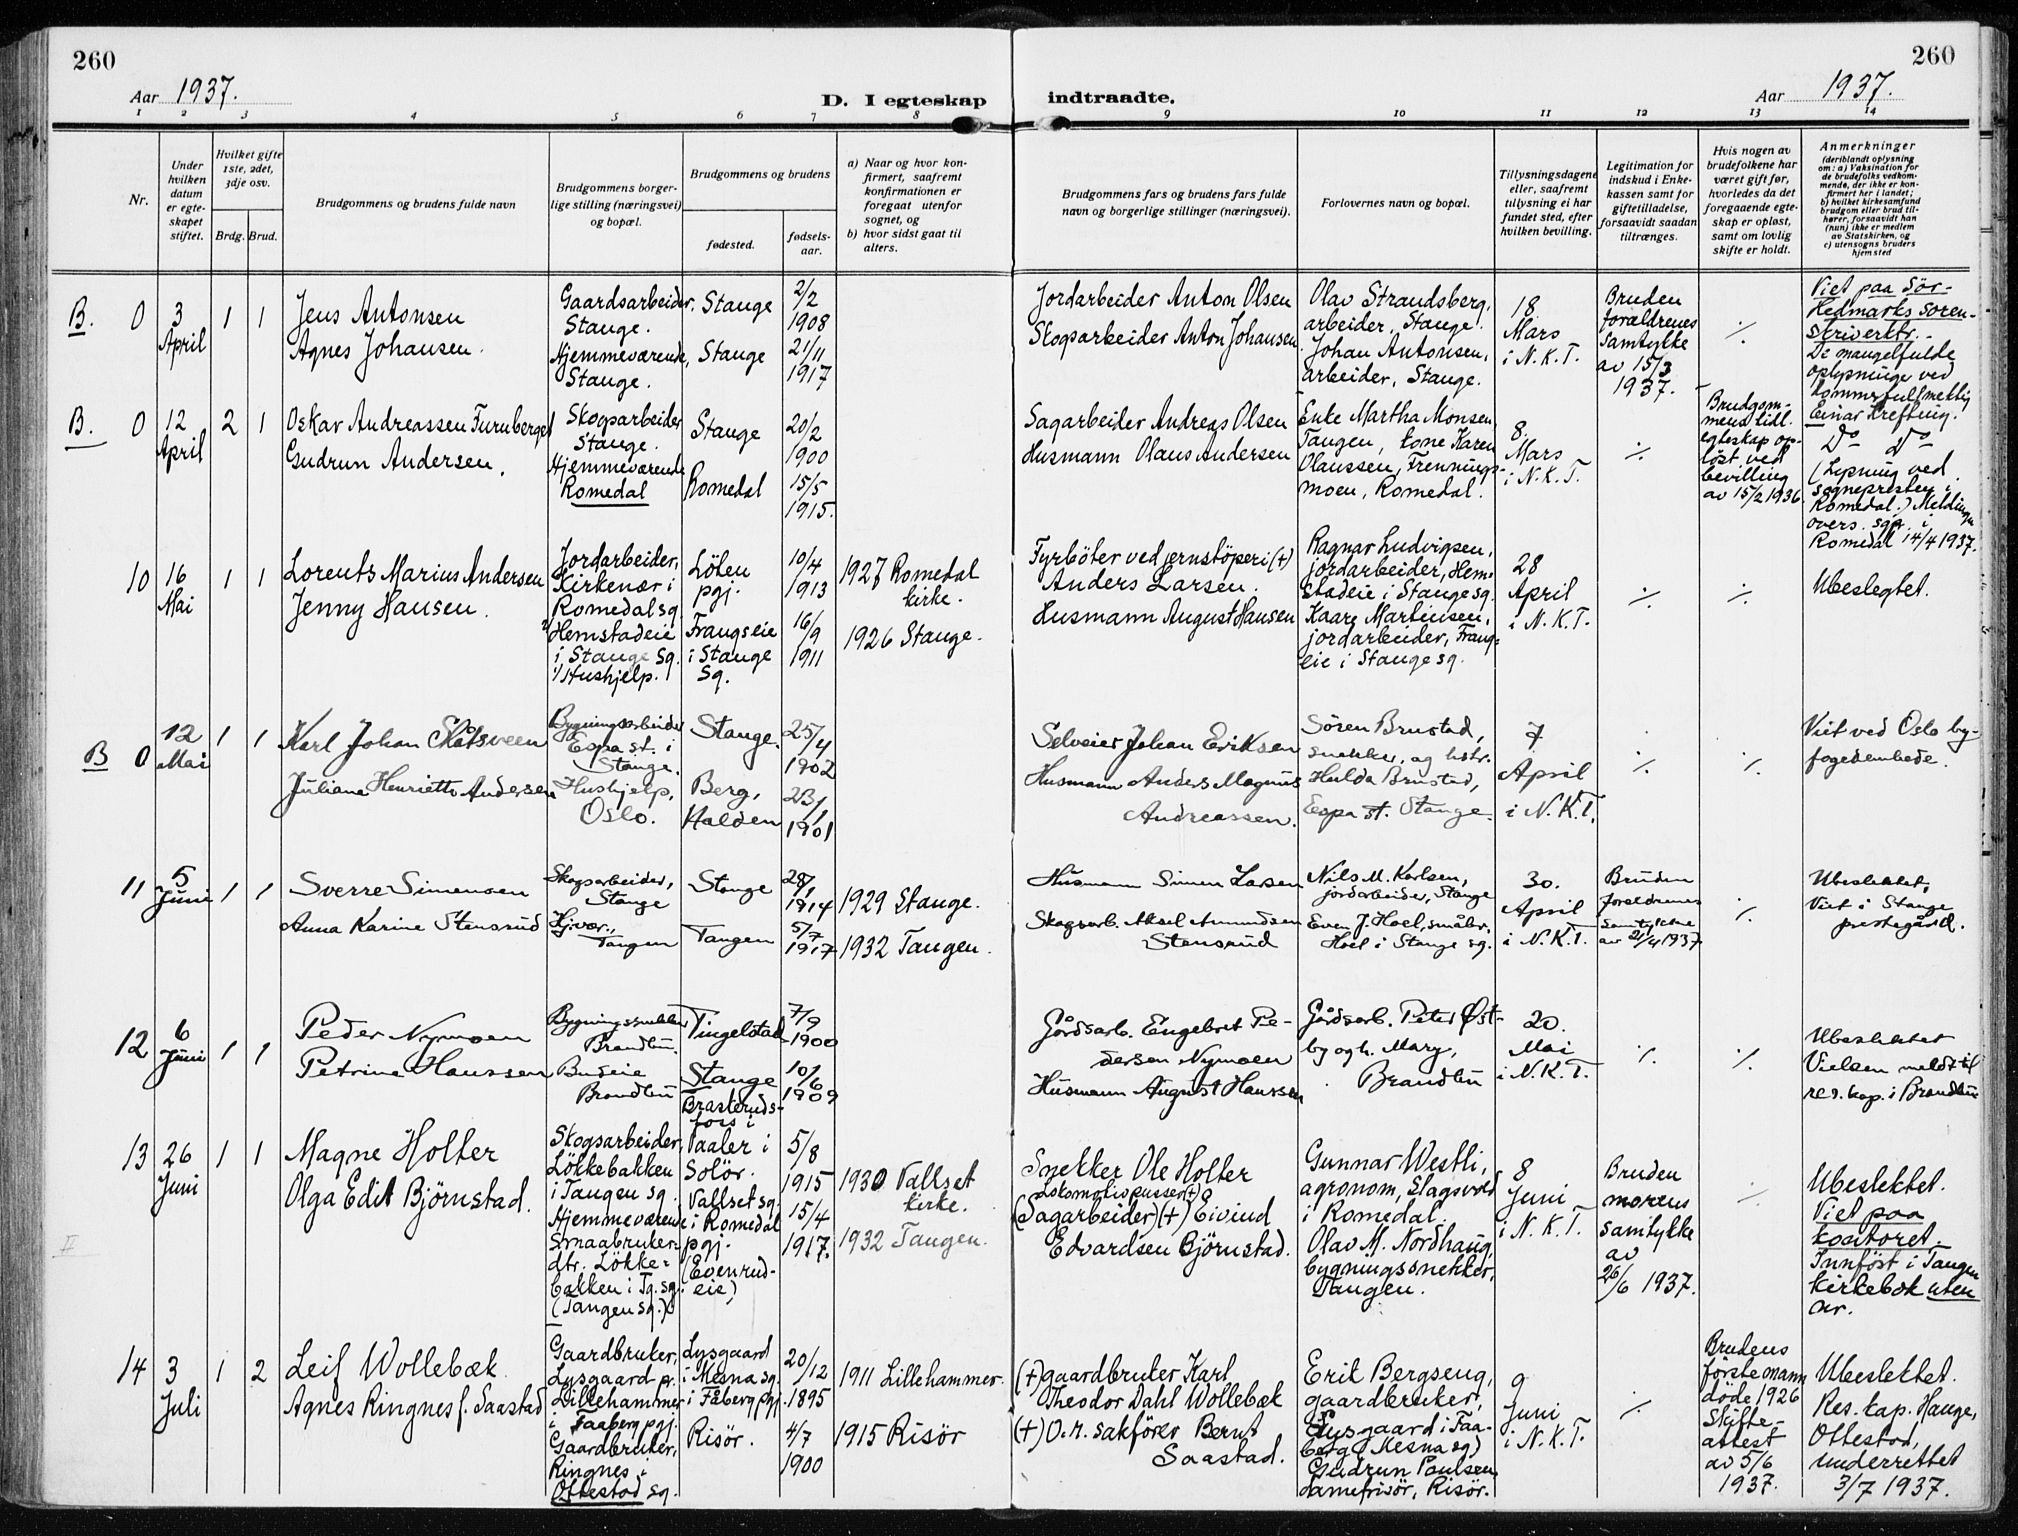 260
260
Aar 1937.
D. I egteskap
indtraadte.
Aar 1937.
1 2 3 4 5 6 7 8 9 10 11 12 13 14
Nr.
Under hvilken datum er egteskapet stiftet.
Hvilket gifte 1ste, 2det, 3dje osv.
Brdg. Brud.
Brudgommens og brudens fulde navn
Brudgommens borgerlige stilling (næringsvei) og bopæl.
Brudgommens og brudens
fødested.
fødselsaar.
a) Naar og hvor konfirmert, saafremt konfirmationen er foregaat utenfor sognet, og
b) hvor sidst gaat til alters.
Brudgommens fars og brudens fars fulde navn og borgerlige stillinger (næringsvei).
Forlovernes navn og bopæl.
Tillysningsdagene eller, saafremt tillysning ei har fundet sted, efter hvilken bevilling.
Legitimation for indskud i Enkekassen samt for giftetilladelse, forsaavidt saadan tiltrænges.
Hvis nogen av brudefolkene har været gift før, hvorledes da det foregaaende egteskap er opløst, samt om lovlig skifte er holdt.
Anmerkninger
(deriblandt oplysning om: a) Vaksination for de brudefolks vedkommende, der ikke er konfirmert her i landet;
b) hvilket kirkesamfund brudgom eller brud tilhører, forsaavidt han (hun) ikke er medlem av Statskirken, og
c) utensogns bruders hjemsted
B. 0 3 April 1 1
Jens Antonsen
Agnes Johansen.
Gaardsarbeider, Stange.
Hjemmeværende, Stange.
Stange
Stange
2/2 1908
21/11 1917
Jordarbeider Anton Olsen
Skogsarbeider Anton Johansen
Olav Strandsberg, arbeider, Stange.
Johan Antonsen, arbeider, Stange.
18. Mars i N.K.T.
Bruden forældrenes samtykke av 15/3 1937.
./.
Viet paa Sør-Hedmarks sorenskriverktr.
De mangelfulde oplysninge ved kommefullmektig Einar Krefting.
B. 0 12 April 2 1
Oskar Andreassen Furuberget
Gudrun Andersen.
Skogsarbeider Stange.
Hjemmeværende Romedal
Stange
Romedal
20/2 1900
15/5 1915.
Sagarbeider Andreas Olsen
Husmann Olaus Andersen
Enke Martha Monsen, Tangen, kone Karen Olaussen, Frenningsmoen, Romedal.
8. Mars i N.K.T.
./.
Brudgommens tidl. egteskap opløst ved bevilling av 15/2 1936.
Do Do
(Lysning ved sognepresten i Romedal.) Meldingen overs. sgpr. i Romedal 14/4 1937.
10 16 Mai 1 1
Lorents Marius Andersen
Jenny Hansen.
Jordarbeider, Kirkenær i Romedal sg.
Hemstadeie i Stange sg.
Hushjelp.
Löten pgj.
Frangseie i Stange sg.
10/4 1913
16/9 1911
1927 Romedal kirke.
1926 Stange.
Fyrböter ved jernstöperi (+) Anders Larsen.
Husmann August Hansen
Ragnar Ludvigsen, jordarbeider, Hemstadeie i Stange sg.
Kaare Martinsen, jordarbeider, Frangeie i Stange sg.
28 April i N.K.T.
./. ./.
Ubeslegtet.
B 0 12 Mai 1 1
Karl Johan Skåtsveen
Juliane Henriette Andersen
Bygningsarbeider Espa st. i Stange.
Hushjelp, Oslo.
Stange.
Berg, Halden
25/4 1902
23/1 1901
Selveier Johan Eriksen
Husmann Anders Magnus Andreassen.
Sören Brustad, snekker, og hstr. Hulda Brustad, Espa st. Stange.
7 April i N.K.T.
./. ./.
Viet ved Oslo byfogedembede.
11 5 Juni 1 1
Sverre Simensen
Anna Karine Stensrud
Skogsarbeider, Stange
Hj.vær., Tangen
Stange
Tangen
28/1 1914
5/7 1917
1929 Stange.
1932 Tangen.
Husmann Simen Larsen
Skogsarb. Aksel Amundsen Stensrud
Nils M. Karlsen, jordarbeider, Stange
Even J. Hoel, småbr. Hoel i Stange sg.
30. April i N.K.T.
Bruden foreldrenes samtykke av 21/4 1937
./.
Ubeslektet,
Viet i Stange prestegård.
12 6 Juni 1 1
Peder Nymoen
Petrine Hanssen
Bygningssnekker Brandbu.
Budeie Brandbu
Tingelstad
Stange
7/9 1900
10/6 1909
Gårdsarb. Engebret Pedersen Nymoen
Husmann August Hanssen
Gårdsarb. Peter Østby og h. Mary, Brandbu
20. Mai i N.K.T.
./. ./.
Ubeslektet
Vielsen meldt til res. kap. i Brandbu
13 26 Juni 1 1
Magne Holter
Olga Edit Björnstad.
Skogsarbeider, Lökkebakken i Tangen sg.
Hjemmeværende Smaabrukerdtr. Lökkebakken i Tg. sg. (Tangen sg.)
Brasterudsfoss i Vaaler i Solör.
Vallset sg. i Romedal pgj. (Evenrudeie)
5/8 1915
15/4 1917.
1930 Vallset kirke.
1932 Tangen.
Snekker Ole Holter
Lokomotivpusser (+)
(Sagarbeider) (+) Eivind Edvardsen Björnstad.
Gunnar Westli, agronom, Slagsvold i Romedal.
Olav M. Nordhaug, bygningssnekker, Tangen.
8 Juni i N.K.T.
Bruden morens samtykke av 26/6 1937.
./.
Ubeslektet.
Viet paa kontoret.
Innföst i Tangen kirkebok uten nr.
II
14 3 Juli 1 2
Leif Wollebæk
Agnes Ringnes f. Saastad
Gaardbruker, Lysgaard pr. Lillehammer i Faaberg pgj.
Gaardbruker, Ringnes i Ottestad sg.
Lysgaard i Mesna sg. i Fåberg pgj.
Risör.
20/12 1895
4/7 1900
1911 Lillehammer.
1915 Risör
(+) gaardbruker Karl Theodor Dahl Wollebæk
(+) O.r. sakförer Bernt Saastad.
Erik Bergseng, gaardbruker, Lysgaard i Faaberg (Mesna sg)
Gudrun Paulsen damefrisör, Risör.
9 Juni i N.K.T.
./.
Brudens förste mann döde 1926 Skifteattest av 5/6 1937.
Ubeslektet.
Res. kap. Hauge, Ottestad, underrettet 3/7 1937.